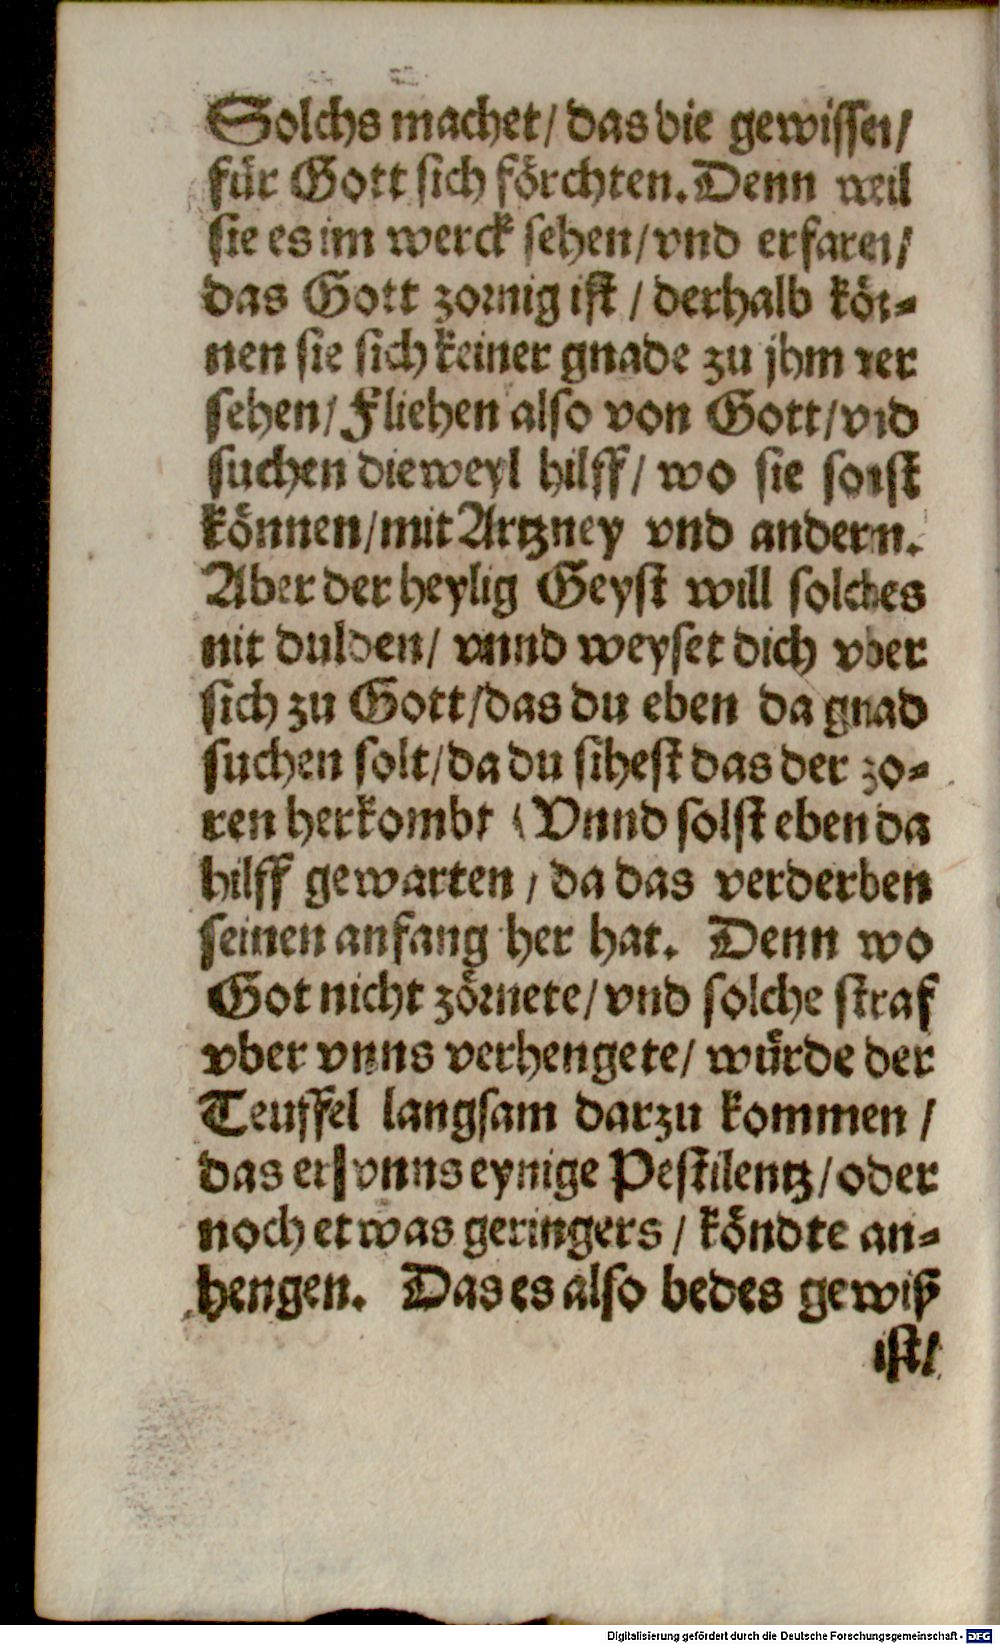 Solchs machet/ das die gewissen/
für Gott sich förchten. Denn weil
sie es im werck sehen/ vnd erfaren/
das Gott zornig ist / derhalb kön-
nen sie sich keiner gnade zu jhm ver
sehen/ Fliehen also von Gott/ vnd
suchen dieweyl hilff/ wo sie sonst
können/ mit Artzney vnd andern.
Aber der heylig Geyst will solches
nit dulden/ vnnd weyset dich vber
sich zu Gott/ das du eben da gnad
suchen solt/ da du sihest das der zo-
ren herkombt (Vnnd solst eben da
hilff gewarten / da das verderben
seinen anfang her hat. Denn wo
Got nicht zörnete/ vnd solche straf
vber vnns verhengete/ würde der
Teuffel langsam darzu kommen /
das er vnns eynige Pestilentz/ oder
noch etwas geringers / köndte an-
hengen. Das es also bedes gewiß
ist/
Digitalisierung gefördert durch die Deutsche Forschungsgemeinschaft - DFG